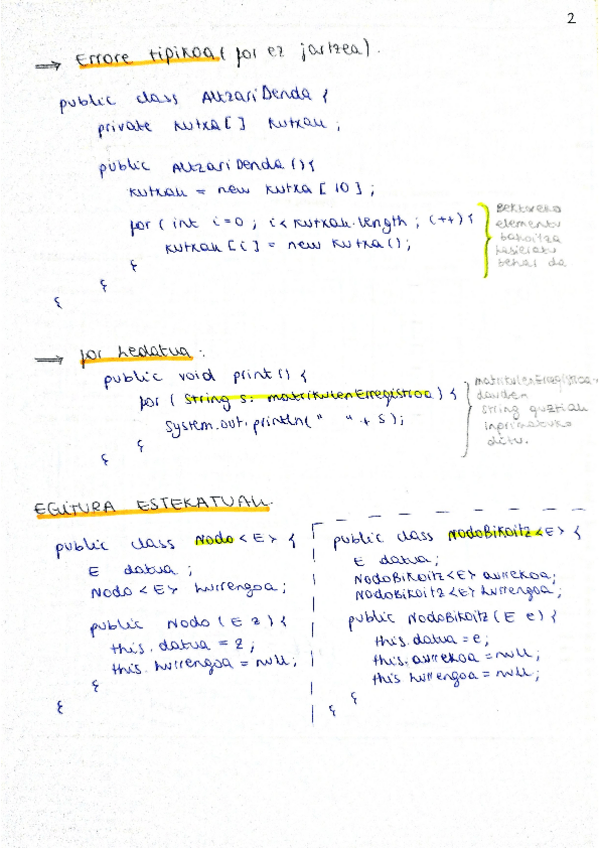 2
→ Errore tipikoa (for ez jartzea).
public class AltzariDenda {
private Kutxa[] Kutxak ;
public AltzariDenda(){
Kutxak = new Kutxa [10] ;
for( int i=0 ; i< Kutxak.length ; i++){
Kutxak [i] = new Kutxa();
}
}
}
Bektoreko
elementu
bakoitza
hasieratu
behar da
→ for hedatua :
public void print() {
for ( String s: matrikulenErregistroa) {
System.out.println(" " + s);
}
}
matrikulenErregistroan
dauden
string guztiak
inprimatuko
ditu.
EGITURA ESTEKATUAK.
public class Nodo <E> {
E datua ;
Nodo <E> hurrengoa;
public Nodo (E 2) {
this.datua = 2;
this.hurrengoa = null;
}
}
public class NodoBikoitz<E> {
E datua;
NodoBikoitz<E> aurrekoa;
NodoBikoitz<E> hurrengoa;
public NodoBikoitz(E e) {
this.datua = e;
this.aurrekoa = null;
this hurrengoa = null;
}
}